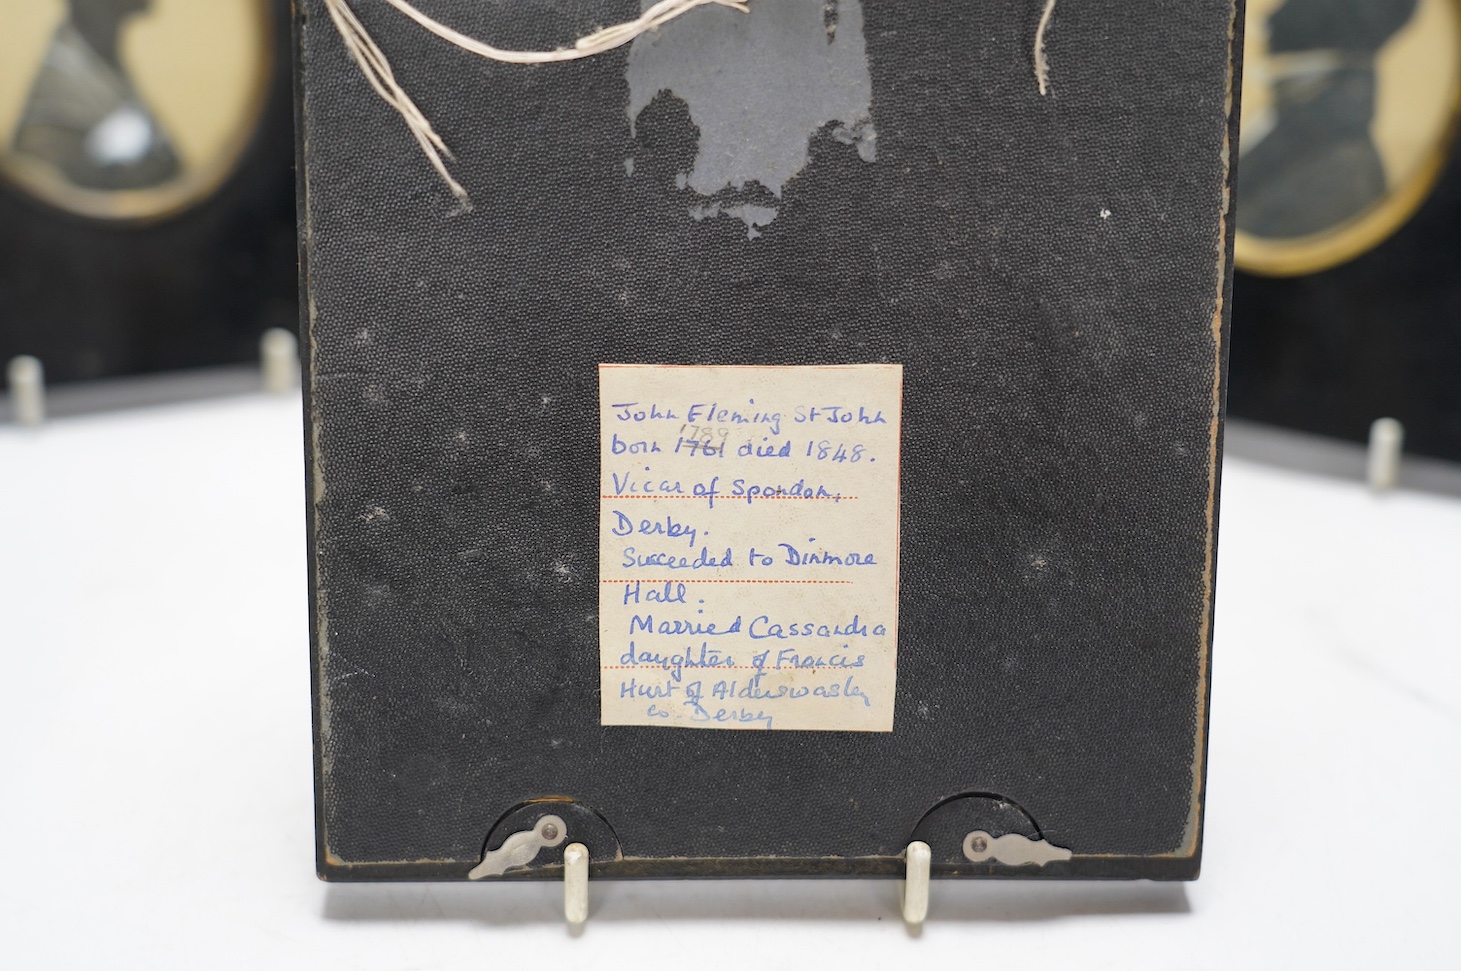 John Fleming St John
1789
born 1761 died 1848.
Vicar of Spondon,
Derby.
Succeeded to Dinmore
Hall.
Married Cassandra
daughter of Francis
Hurt of Alderwasley
co. Derby